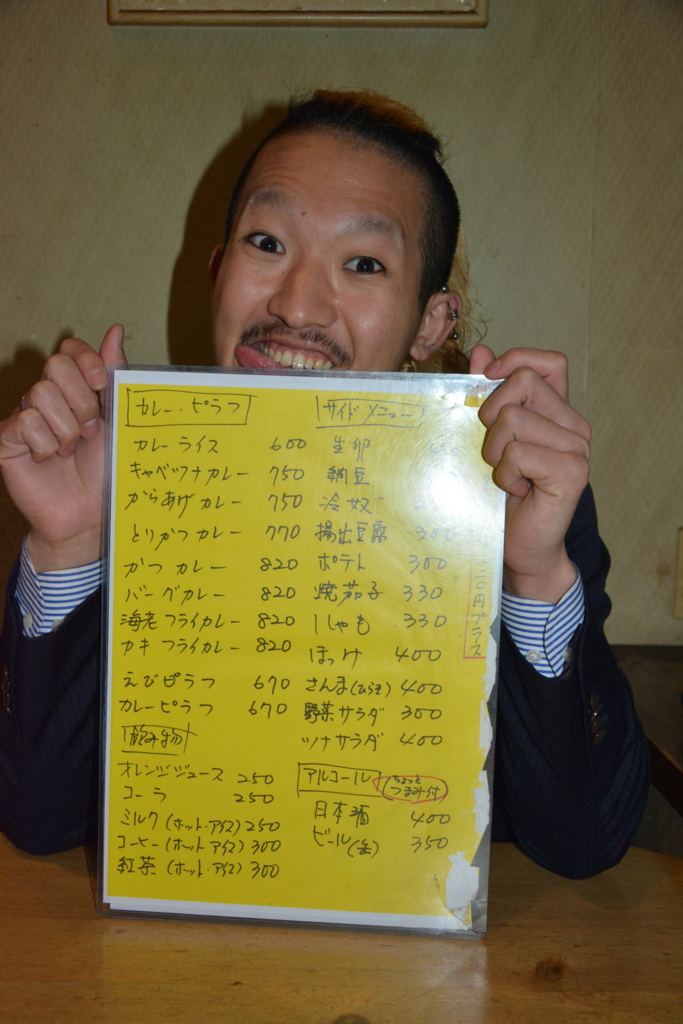 カレー・ピラフ
カレーライス 600
キャベツナカレー 750
からあげカレー 750
とりかつカレー 770
かつカレー 820
バーグカレー 820
海老フライカレー 820
カキフライカレー 820
えびピラフ 670
カレーピラフ 670
飲み物
オレンジジュース 250
コーラ 250
ミルク(ホット・アイス) 250
コーヒー(ホット・アイス) 300
紅茶(ホット・アイス) 300
サイドメニュー
生卵
納豆
冷奴
揚出豆腐 300
ポテト 300
焼茄子 330
ししゃも 330
ほっけ 400
さんま(ひらき) 400
野菜サラダ 300
ツナサラダ 400
アルコール (ちょっとつまみ付)
日本酒 400
ビール(缶) 350
円プラス